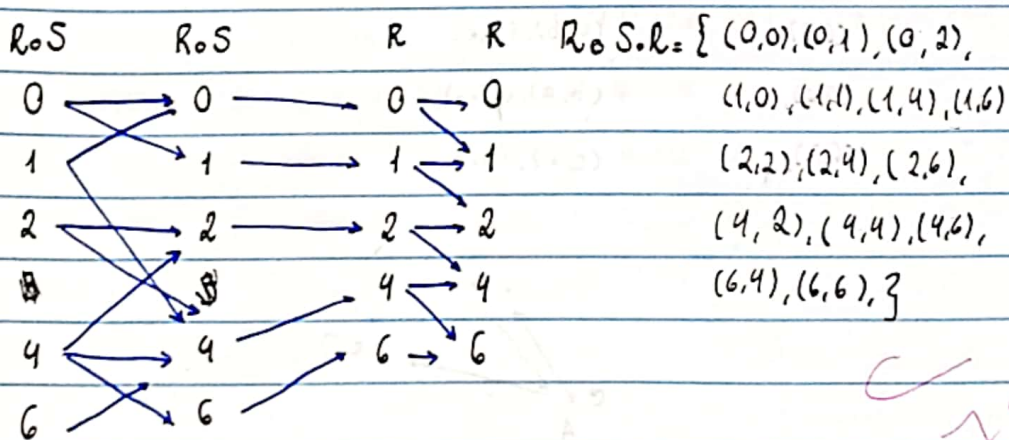 R∘S R∘S R R R∘S∘R = { (0,0), (0,1), (0,2),
0 0 0 0 (1,0), (1,1), (1,4), (1,6)
1 1 1 1 (2,2), (2,4), (2,6),
2 2 2 2 (4,2), (4,4), (4,6),
4 4 (6,4), (6,6), }
4 4 6 6
6 6